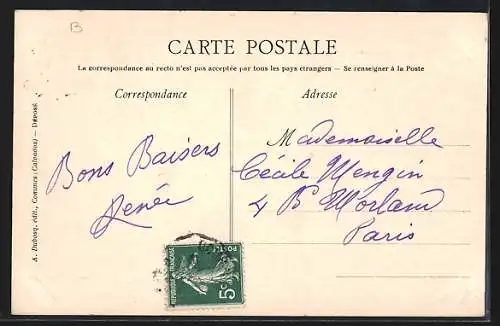 B
CARTE POSTALE
La correspondance au recto n'est pas acceptée par tous les pays étrangers — Se renseigner à la Poste
Correspondance
Adresse
Bons Baisers
Renée
Mademoiselle
Cécile Mengin
4 Bd Morland
Paris
A. Dubosq, édit., Cormes (Calvados) — Déposé.
REPUBLIQUE FRANÇAISE
POSTES
5c